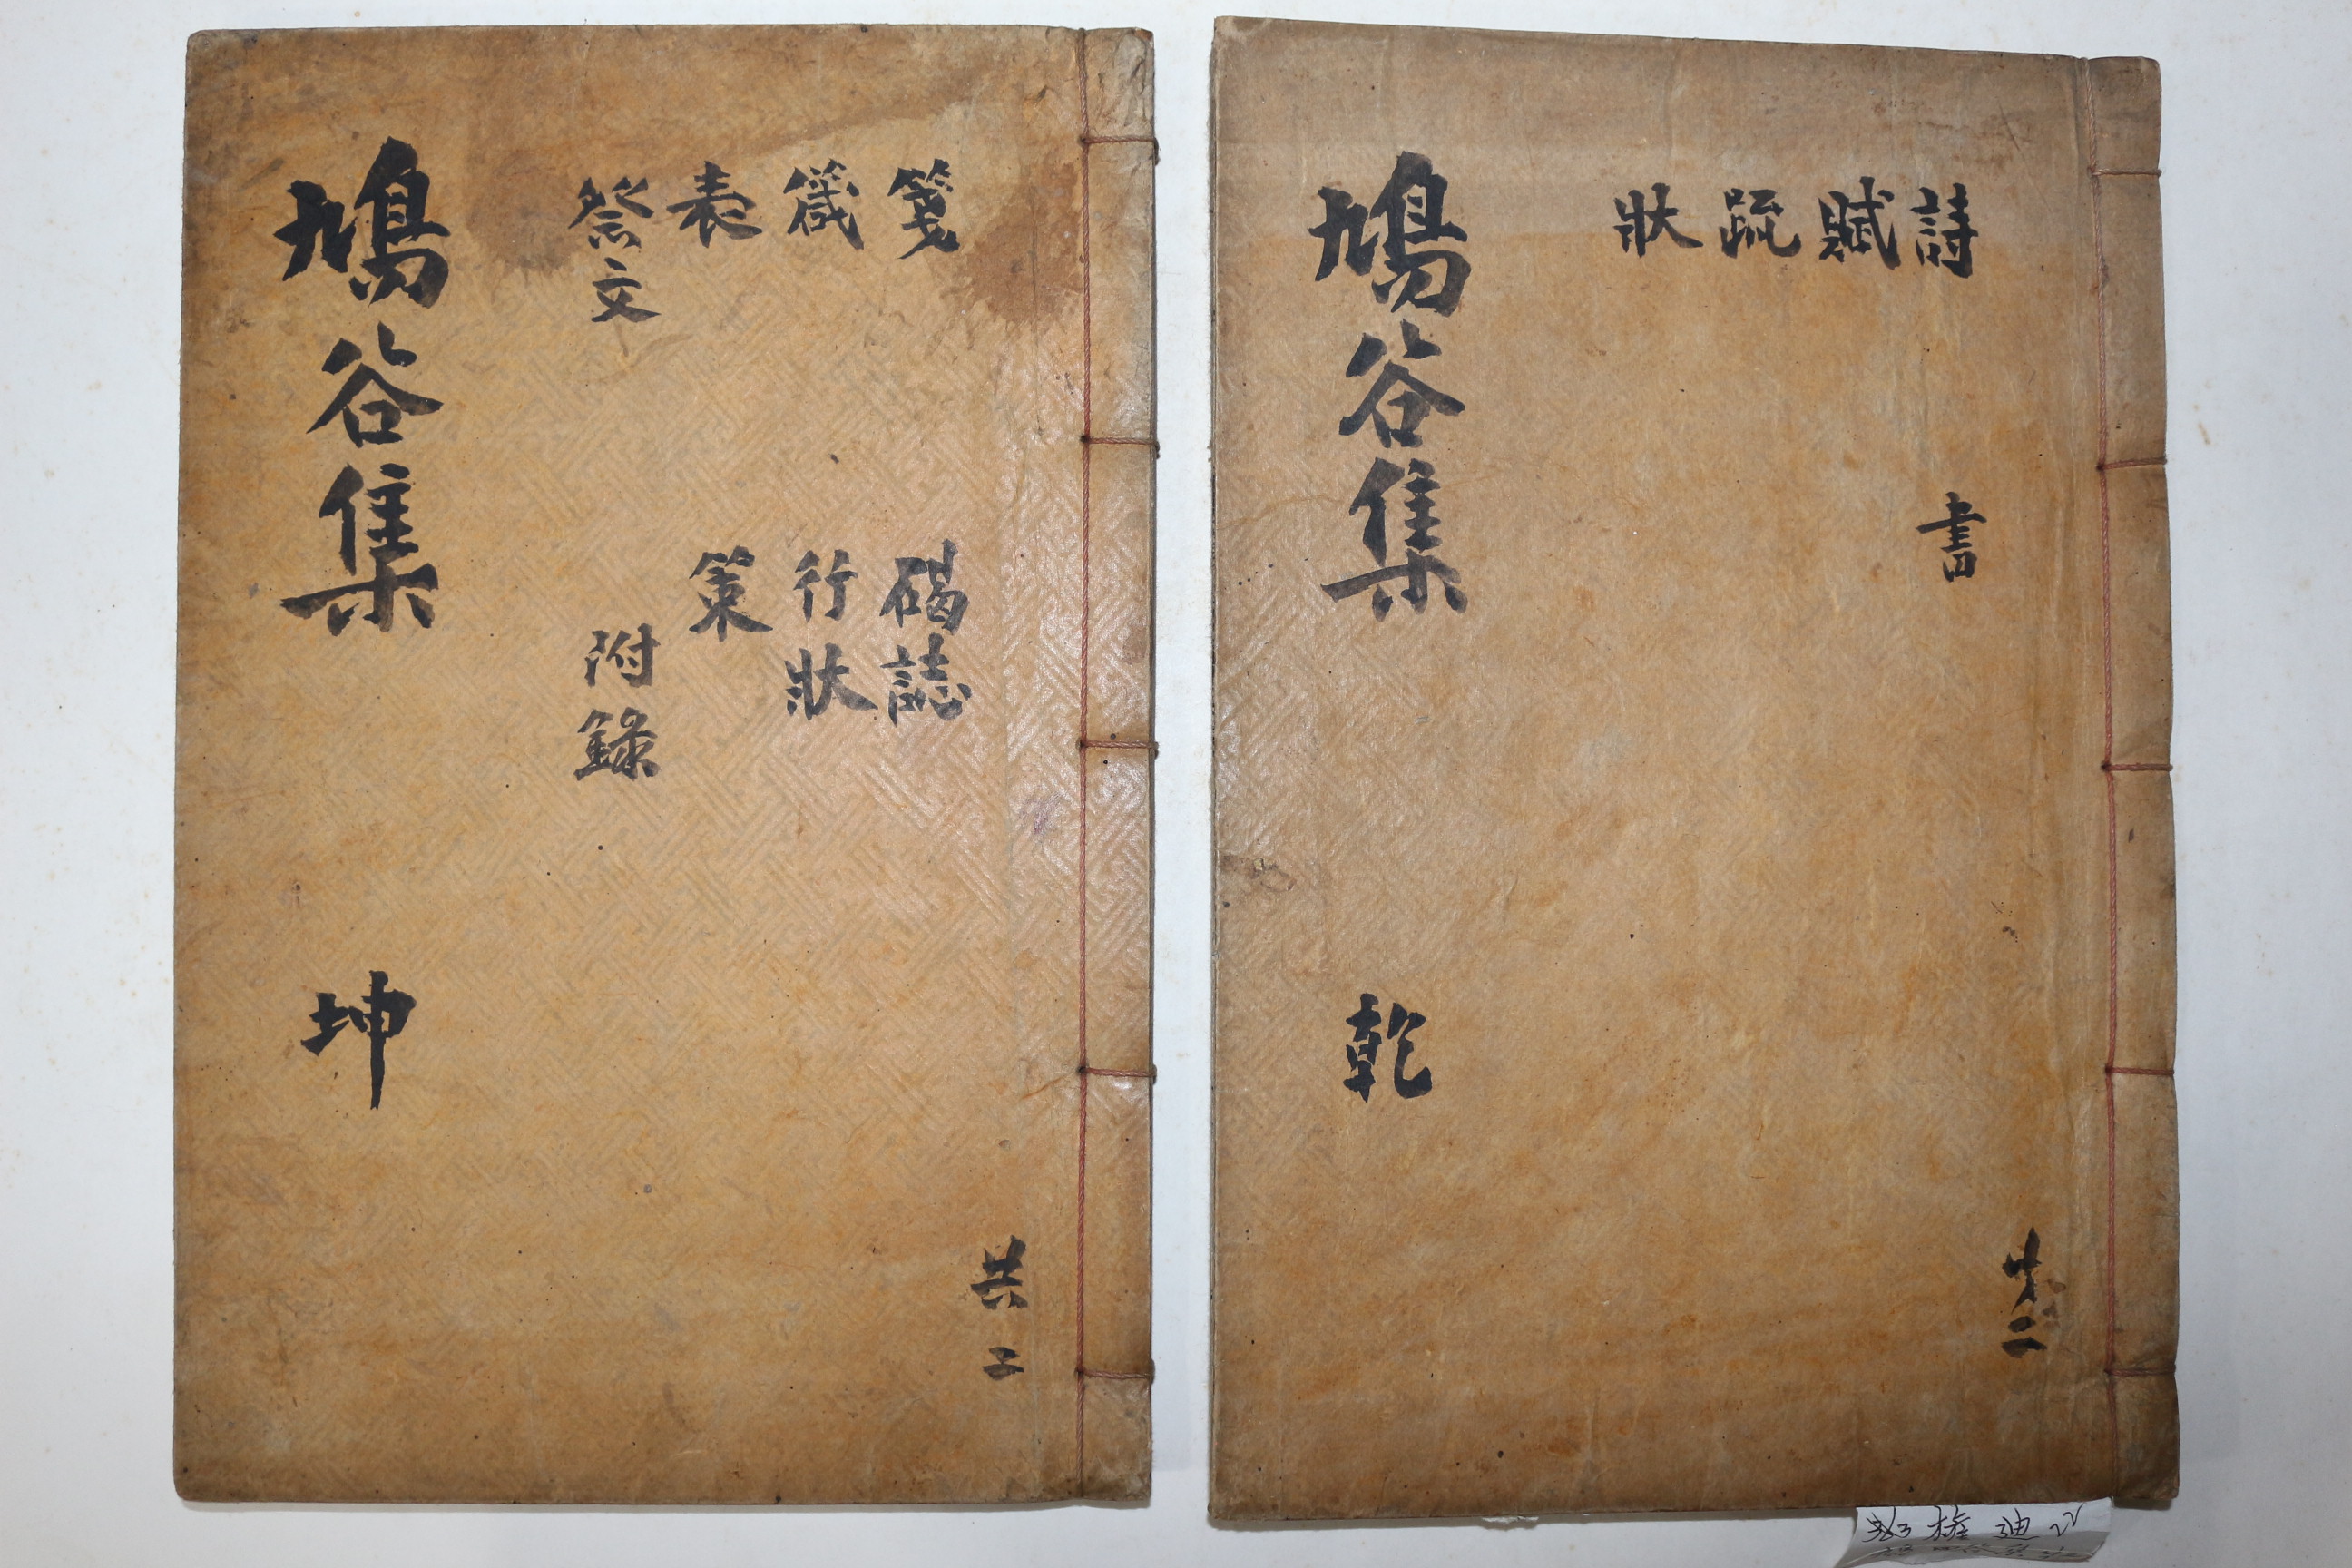 詩
賦
疏
狀
書
鳩谷集 乾
共二
箋
箴
表
祭文
碣誌
行狀
策
附錄
鳩谷集 坤
共二